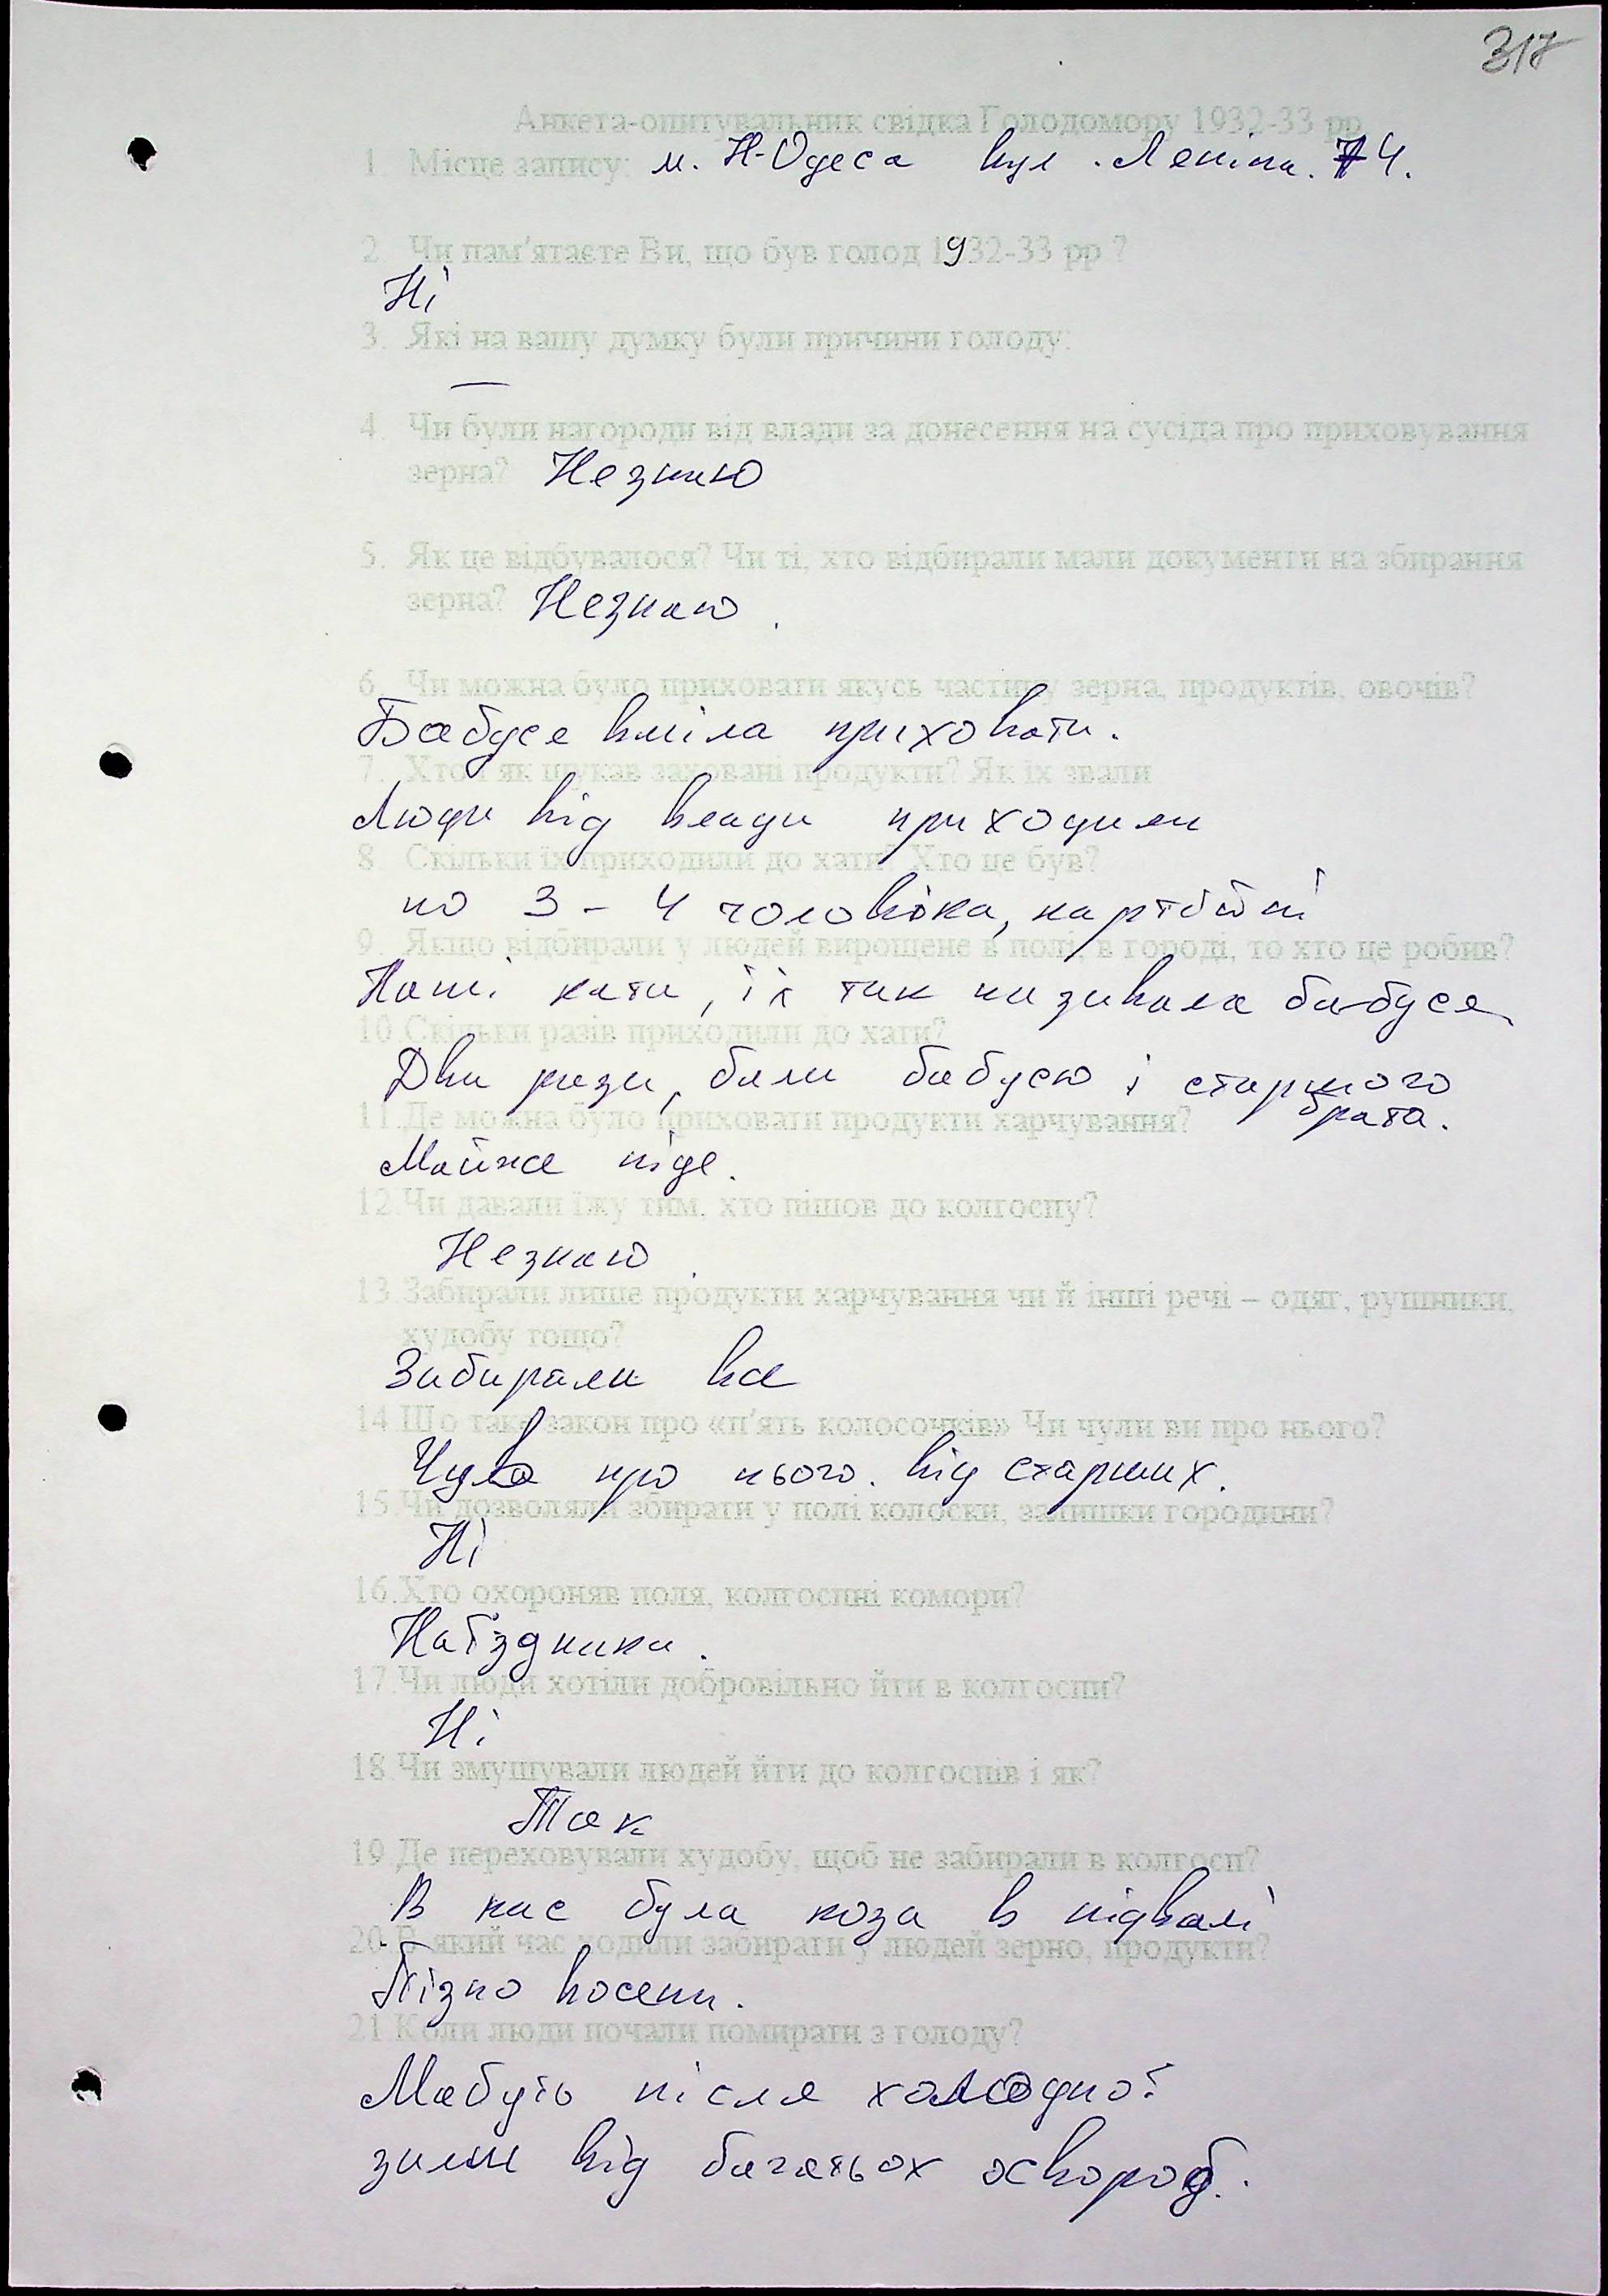 317
Анкета-опитувальник свідка Голодомору 1932-33 рр
1. Місце запису: м. Н-Одеса вул. Леніна. 74.
2. Чи пам'ятаєте Ви, що був голод 1932-33 рр ?
Ні
3. Які на вашу думку були причини голоду:
—
4. Чи були нагороди від влади за донесення на сусіда про приховування
зерна? Незнаю
5. Як це відбувалося? Чи ті, хто відбирали мали документи на збирання
зерна? Незнаю.
6. Чи можна було приховати якусь частину зерна, продуктів, овочів?
Бабуся вміла приховати.
7. Хто і як шукав заховані продукти? Як їх звали
Люди від влади приходили
8. Скільки їх приходили до хати? Хто це був?
по 3-4 чоловіка, партійні
9. Якщо відбирали у людей вирощене в полі, в городі, то хто це робив?
Наші кати, їх так називала бабуся
10.Скільки разів приходили до хати?
Два рази, били бабусю і старшого
брата.
11.Де можна було приховати продукти харчування?
Майже ніде.
12.Чи давали їжу тим, хто пішов до колгоспу?
Незнаю.
13.Забирали лише продукти харчування чи й інші речі – одяг, рушники,
худобу тощо?
Забирали все
14.Що таке закон про «п'ять колосочків» Чи чули ви про нього?
Чула про нього. від старших.
15.Чи дозволяли збирати у полі колоски, залишки городини?
Ні
16.Хто охороняв поля, колгоспні комори?
Наїздники.
17.Чи люди хотіли добровільно йти в колгоспи?
Ні
18.Чи змушували людей йти до колгоспів і як?
Так
19.Де переховували худобу, щоб не забирали в колгосп?
В нас була коза в підвалі
20.В який час ходили забирати у людей зерно, продукти?
Пізно восени.
21.Коли люди почали помирати з голоду?
Мабуть після холодної
зими від багатьох